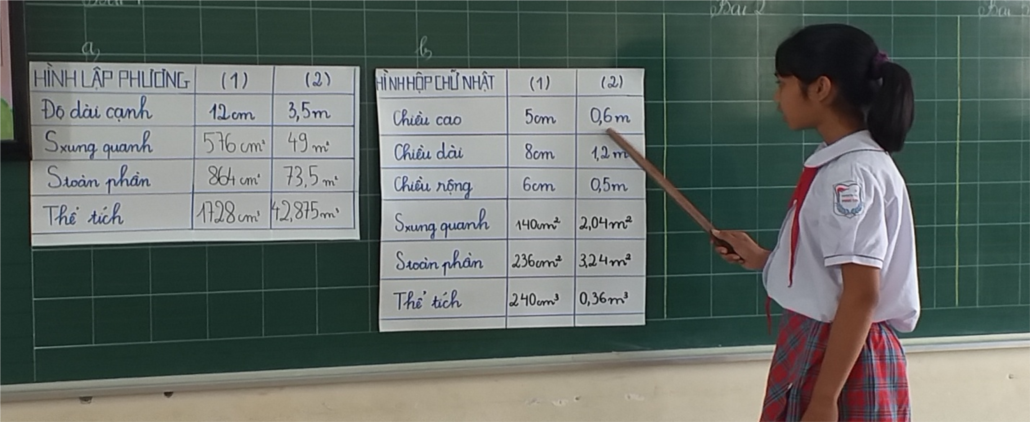 Bài 2
a,
b,
HÌNH LẬP PHƯƠNG (1) (2)
Độ dài cạnh 12cm 3,5m
Sxung quanh 576 cm² 49 m²
Stoàn phần 864 cm² 73,5 m²
Thể tích 1728 cm³ 42,875 m³
HÌNH HỘP CHỮ NHẬT (1) (2)
Chiều cao 5cm 0,6m
Chiều dài 8cm 1,2m
Chiều rộng 6cm 0,5m
Sxung quanh 140cm² 2,04m²
Stoàn phần 236cm² 3,24m²
Thể tích 240cm³ 0,36m³